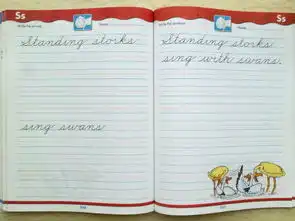 Ss
Standing storks
sing swans
Ss
Standing storks
sing with swans.